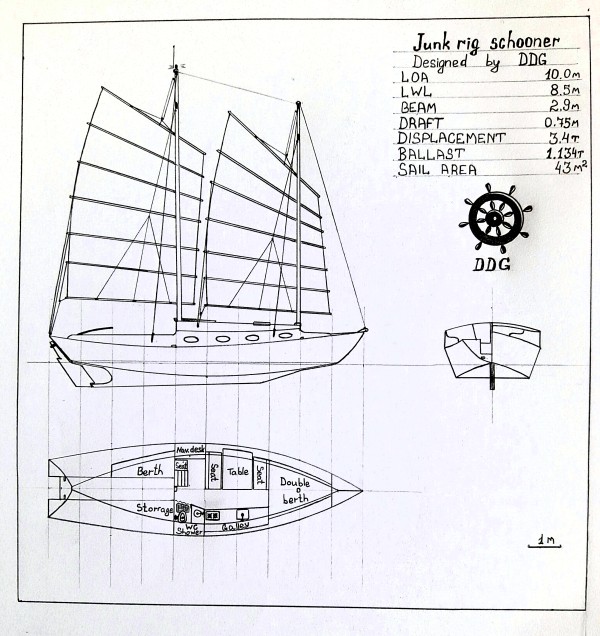 Junk rig schooner
Designed by DDG
LOA 10.0m
LWL 8.5m
BEAM 2.9m
DRAFT 0.75m
DISPLACEMENT 3.4T
BALLAST 1.134T
SAIL AREA 43m²
DDG
Nav. desk
Berth
Seat
Seat
Table
Seat
Double
berth
Storrage
WC
Shower
Galley
1m